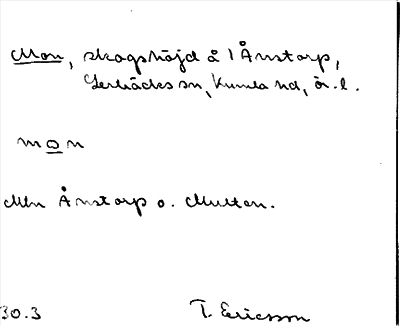 Mon, skogshöjd å 1 Ånstorp,
Lerbäcks sn, Kumla hd, ör. l.
mon
Mln Ånstorp o. Multen.
30.3 T. Ericsson